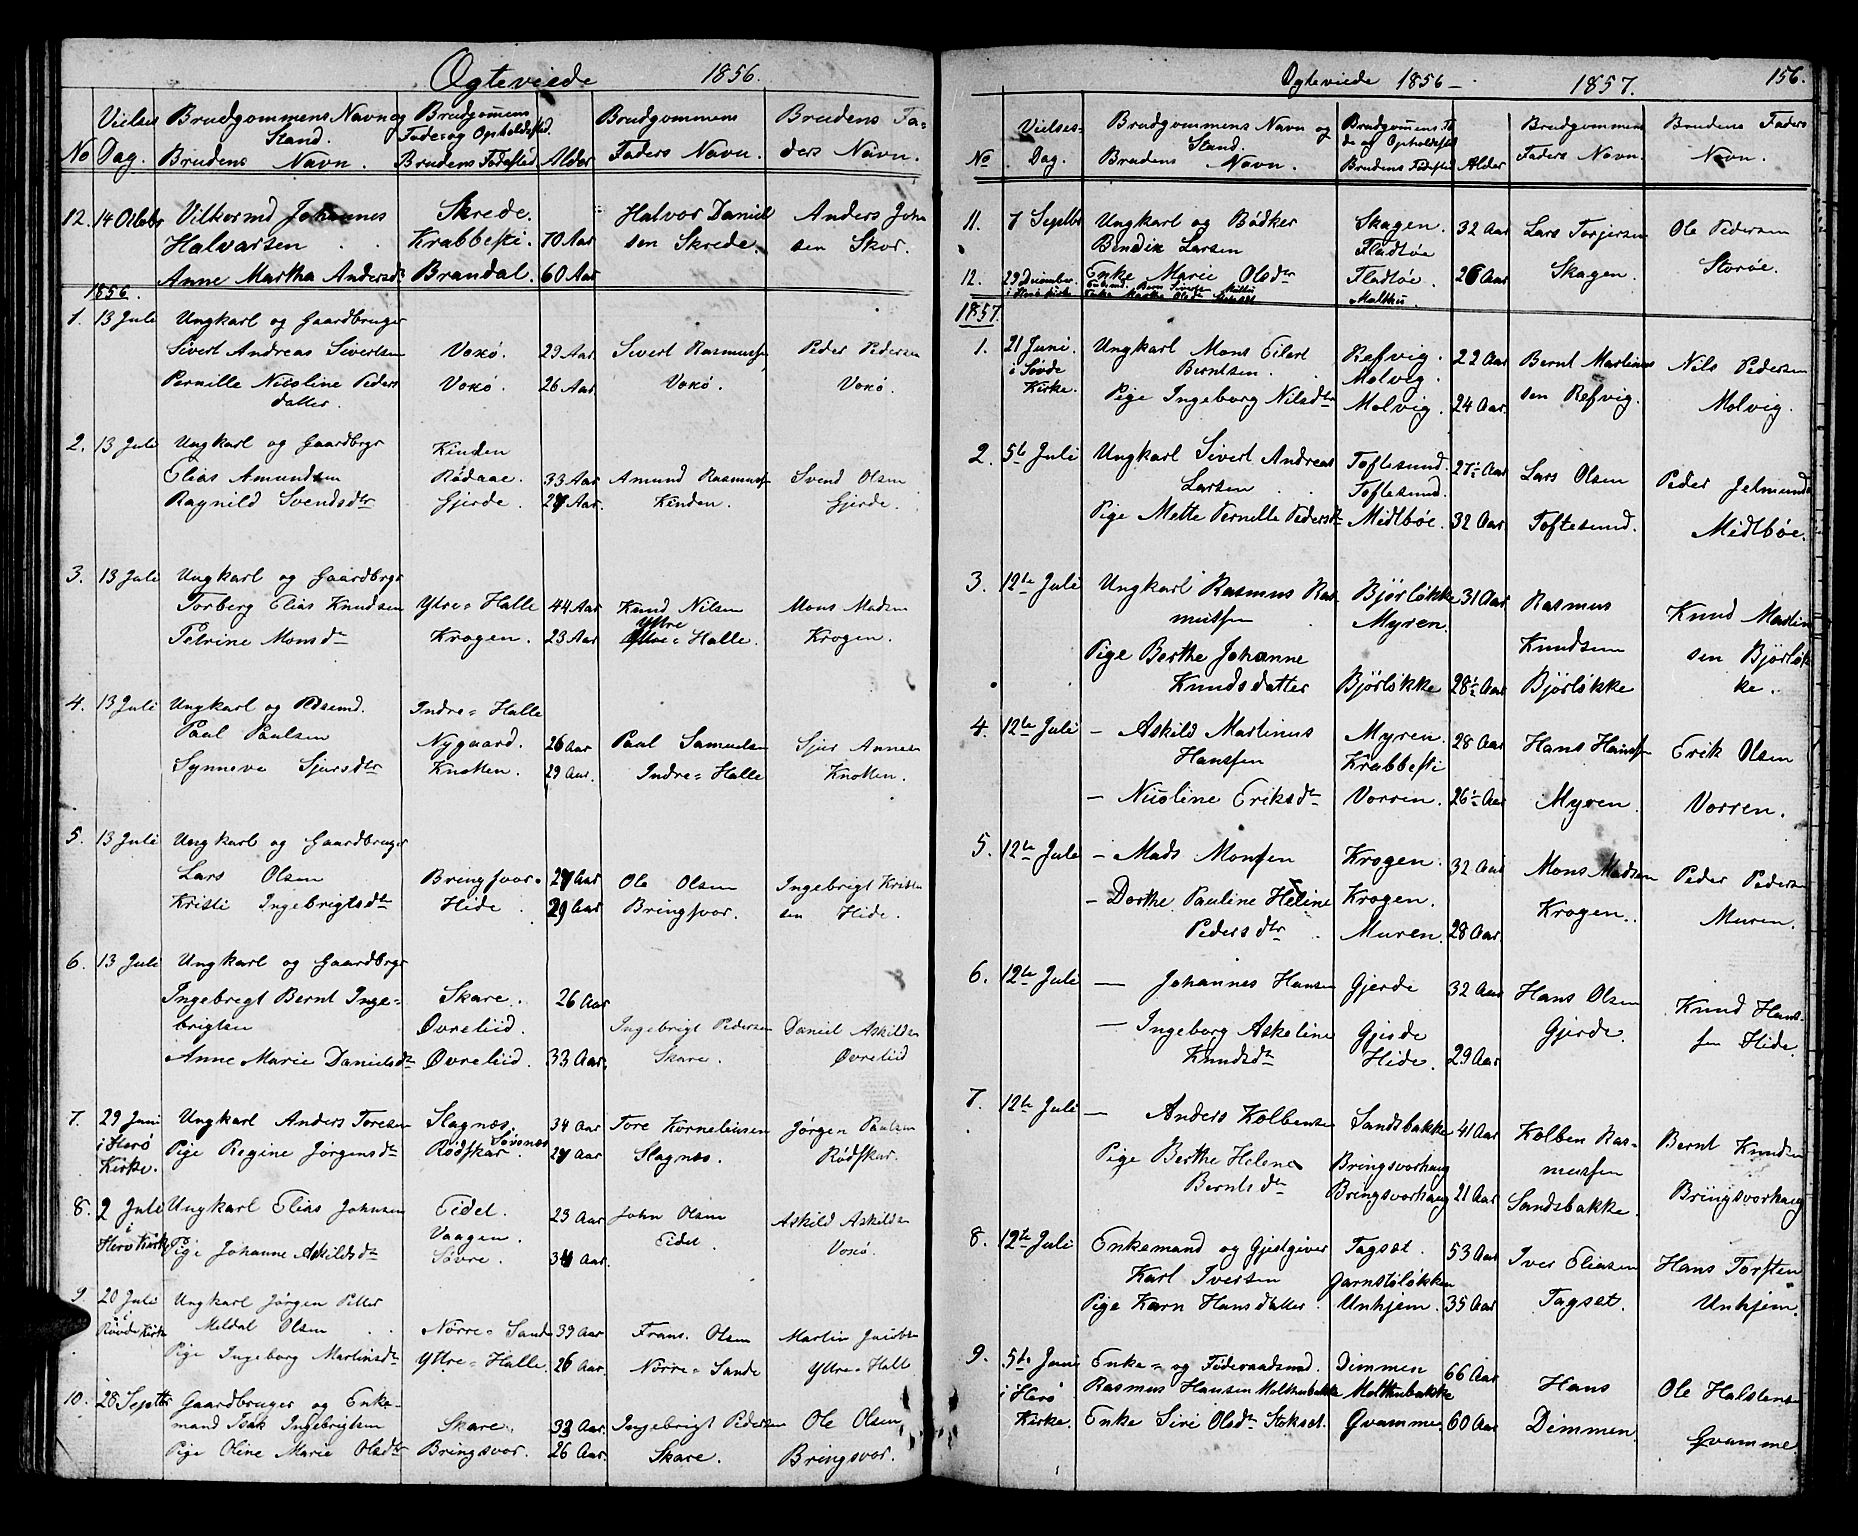 Ogteviede 1856.
No Vielses Dag. Brudgommens Navn og Stand. Brudens Navn. Brudgommens Føde- og Opholdssted. Brudens Fødested. Alder Brudgommens Faders Navn. Brudens Faders Navn.
12. 14 Octobr Johannes Skrede. Halvor Daniel Anders Joh
Halvarsen Krabbesti. 70 Aar sen Skrede. sen Skor.
Anne Martha Andersdtr Brandal. 60 Aar
1856.
1. 13 Juli Ungkarl og Gaardbruger
Sivert Andreas Sivertsen Voxö. 29 Aar Sivert Rasmussn Peder Pedersen
Pernille Nicoline Peders Voxö. 26 Aar Voxö. Voxö.
datter.
2. 13 Juli Ungkarl og Gaardbrgr Kinden
Elias Amundsen Rödaae. 33 Aar Amund Rasmussn Svend Olsen
Ragnild Svendsdtr Gjerde. 27 Aar. Kinden. Gjerde.
3. 13 Juli Ungkarl og Gaardbrgr
Torberg Elias Knudsen Ytre-Halle 44 Aar Knud Nilsen Mons Madsen
Petrine Monsdtr Krogen. 23 Aar Ytre-Halle. Krogen.
4. 13 Juli Ungkarl og Indre-Halle
Paul Paulsen Nygaard. 26 Aar Paul Samuelsen Sjur Annee
Synneve Sjursdtr Knotten. 29 Aar. Indre-Halle Knotten.
5. 13 Juli Ungkarl og Gaardbruger
Lars Olsen Bringsvor. 27 Aar Ole Olsen Ingebrigt Kristen
Kristi Ingebrigtsdtr Hide. 29 Aar Bringsvor. sen Hide.
6. 13 Juli Ungkarl og Gaardbrgr
Ingebrigt Bernt Inge- Skare. 26 Aar
brigtsen Øvreliid. Ingebrigt Pedersen Daniel Askildsen
Anne Marie Danielsdtr Øvreliid. 33 Aar. Skare. Øvreliid
7. 29 Juni Ungkarl Anders Toresen Slagnæs. 34 Aar Tore Korneliusen Jørgen Paulsen
i Herö Pige Regine Jörgensdtr Rödskar. 27 Aar Slagnæs. Rödskar.
Kirke.
8. 2 Juli Ungkarl Elias Johnsen Eidet. 23 Aar John Olsen Askild Askildsen
i Vaagen. Eidet Voxö.
Herö Kirke Pige Johanne Askildsdtr Søvre. 34 Aar.
9. 20 Juli Ungkarl Jörgen Petter
i Rövde Kirke Meldal Olsen Nörre-Sande 39 Aar Frans. Olsen Martin Jacobsen
Pige Ingeborg Martinsdtr Ytre-Halle. 26 Aar. Nörre-Sande Ytre-Halle
10. 28 Septbr Gaardbruger og Enke-
mand Isak Ingebrigtsen Skare. 33 Aar. Ingebrigt Pedersen Ole Olsen
Pige Oline Marie Olsdtr Bringsvor. 26 Aar. Skare. Bringsvor.
Ogteviede 1856 - 1857. 156.
No Vielses- Dag. Brudgommens Navn og Stand. Brudens Navn. Brudgommens Fø de og Opholdssted Brudens Fødested Alder Brudgommens Faders Navn. Brudens Faders Navn.
11. 7 Septbr Ungkarl og Bödker Skagen. 32 Aar Lars Torjersen Ole Pedersen
Bendix Larsen Fladtöe Skagen. Storöe.
12. 29 December Enke Marie Olsdtr Fladtöe. 26 Aar
1857.
1. 21 Juni. Ungkarl Mons Eilert Refvig. 22 Aar Bernt Martinus Nils Pedersen
i Søvde Berntsen. Molvig. sen Refvig. Molvig.
Kirke. Pige Ingeborg Nilsdtr Molvig. 24 Aar.
2. 5te Juli Ungkarl Sivert Andreas Toftesund. 27½ Aar Lars Olsen Peder Jetmunds
Larsen Toftesund.
Pige Mette Pernille Pedersdtr Midtböe. 32 Aar Toftesund. Midtböe.
3. 12te Juli Ungkarl Rasmus Ras Bjørlökke 31 Aar Rasmus Knud Martin
mussen Myren. Knudsen sen Bjørlök
Pige Berthe Johanne
Knudsdatter Bjørlökke 28½ Aar Bjørlökke ke.
4. 12te Juli - Askild Martinus Myren. 28 Aar Hans Hanssn Erik Olsen
Hanssen Krabbesti
- Nicoline Eriksdtr Vorren. 26½ Aar Myren. Vorren.
5. 12te Juli - Mads Monsen Krogen. 32 Aar Mons Madsen Peder Pedersen
- Dorthe Pauline Heline Krogen. Krogen. Muren.
Pedersdtr Muren. 28 Aar.
6. 12te Juli - Johannes Hansen Gjerde 32 Aar Hans Olsen Knud Hans-
- Ingeborg Askeline Gjerde Gjerde. sen Hide.
Knudsdtr Hide. 29 Aar
7. 12te Juli - Anders Kolbensen Sandsbakke 41 Aar Kolben Ras- Bernt Knudsen
Pige Berthe Helene Bringsvorhaug mussen
Berntsdtr Bringsvorhaug 21 Aar Sandsbakke. Bringsvorhaug
8. 12te Juli Enkemand og Gjestgiver Tagset. 53 Aar Iver Eliasen Hans Torsten
Karl Iversen Garnstölökken
Pige Karn Hansdatter. Unhjem. 35 Aar Tagset. Unhjem.
9. 5te Juni Enke- og Føderaadsmd. Dimmen 66 Aar
i Herö Rasmus Hansen Molthubakke Molthubakke Hans Ole Halstensen
Kirke. Enke Siri Olsdtr Stokset. Qvamme 60 Aar Dimmen. Qvamme